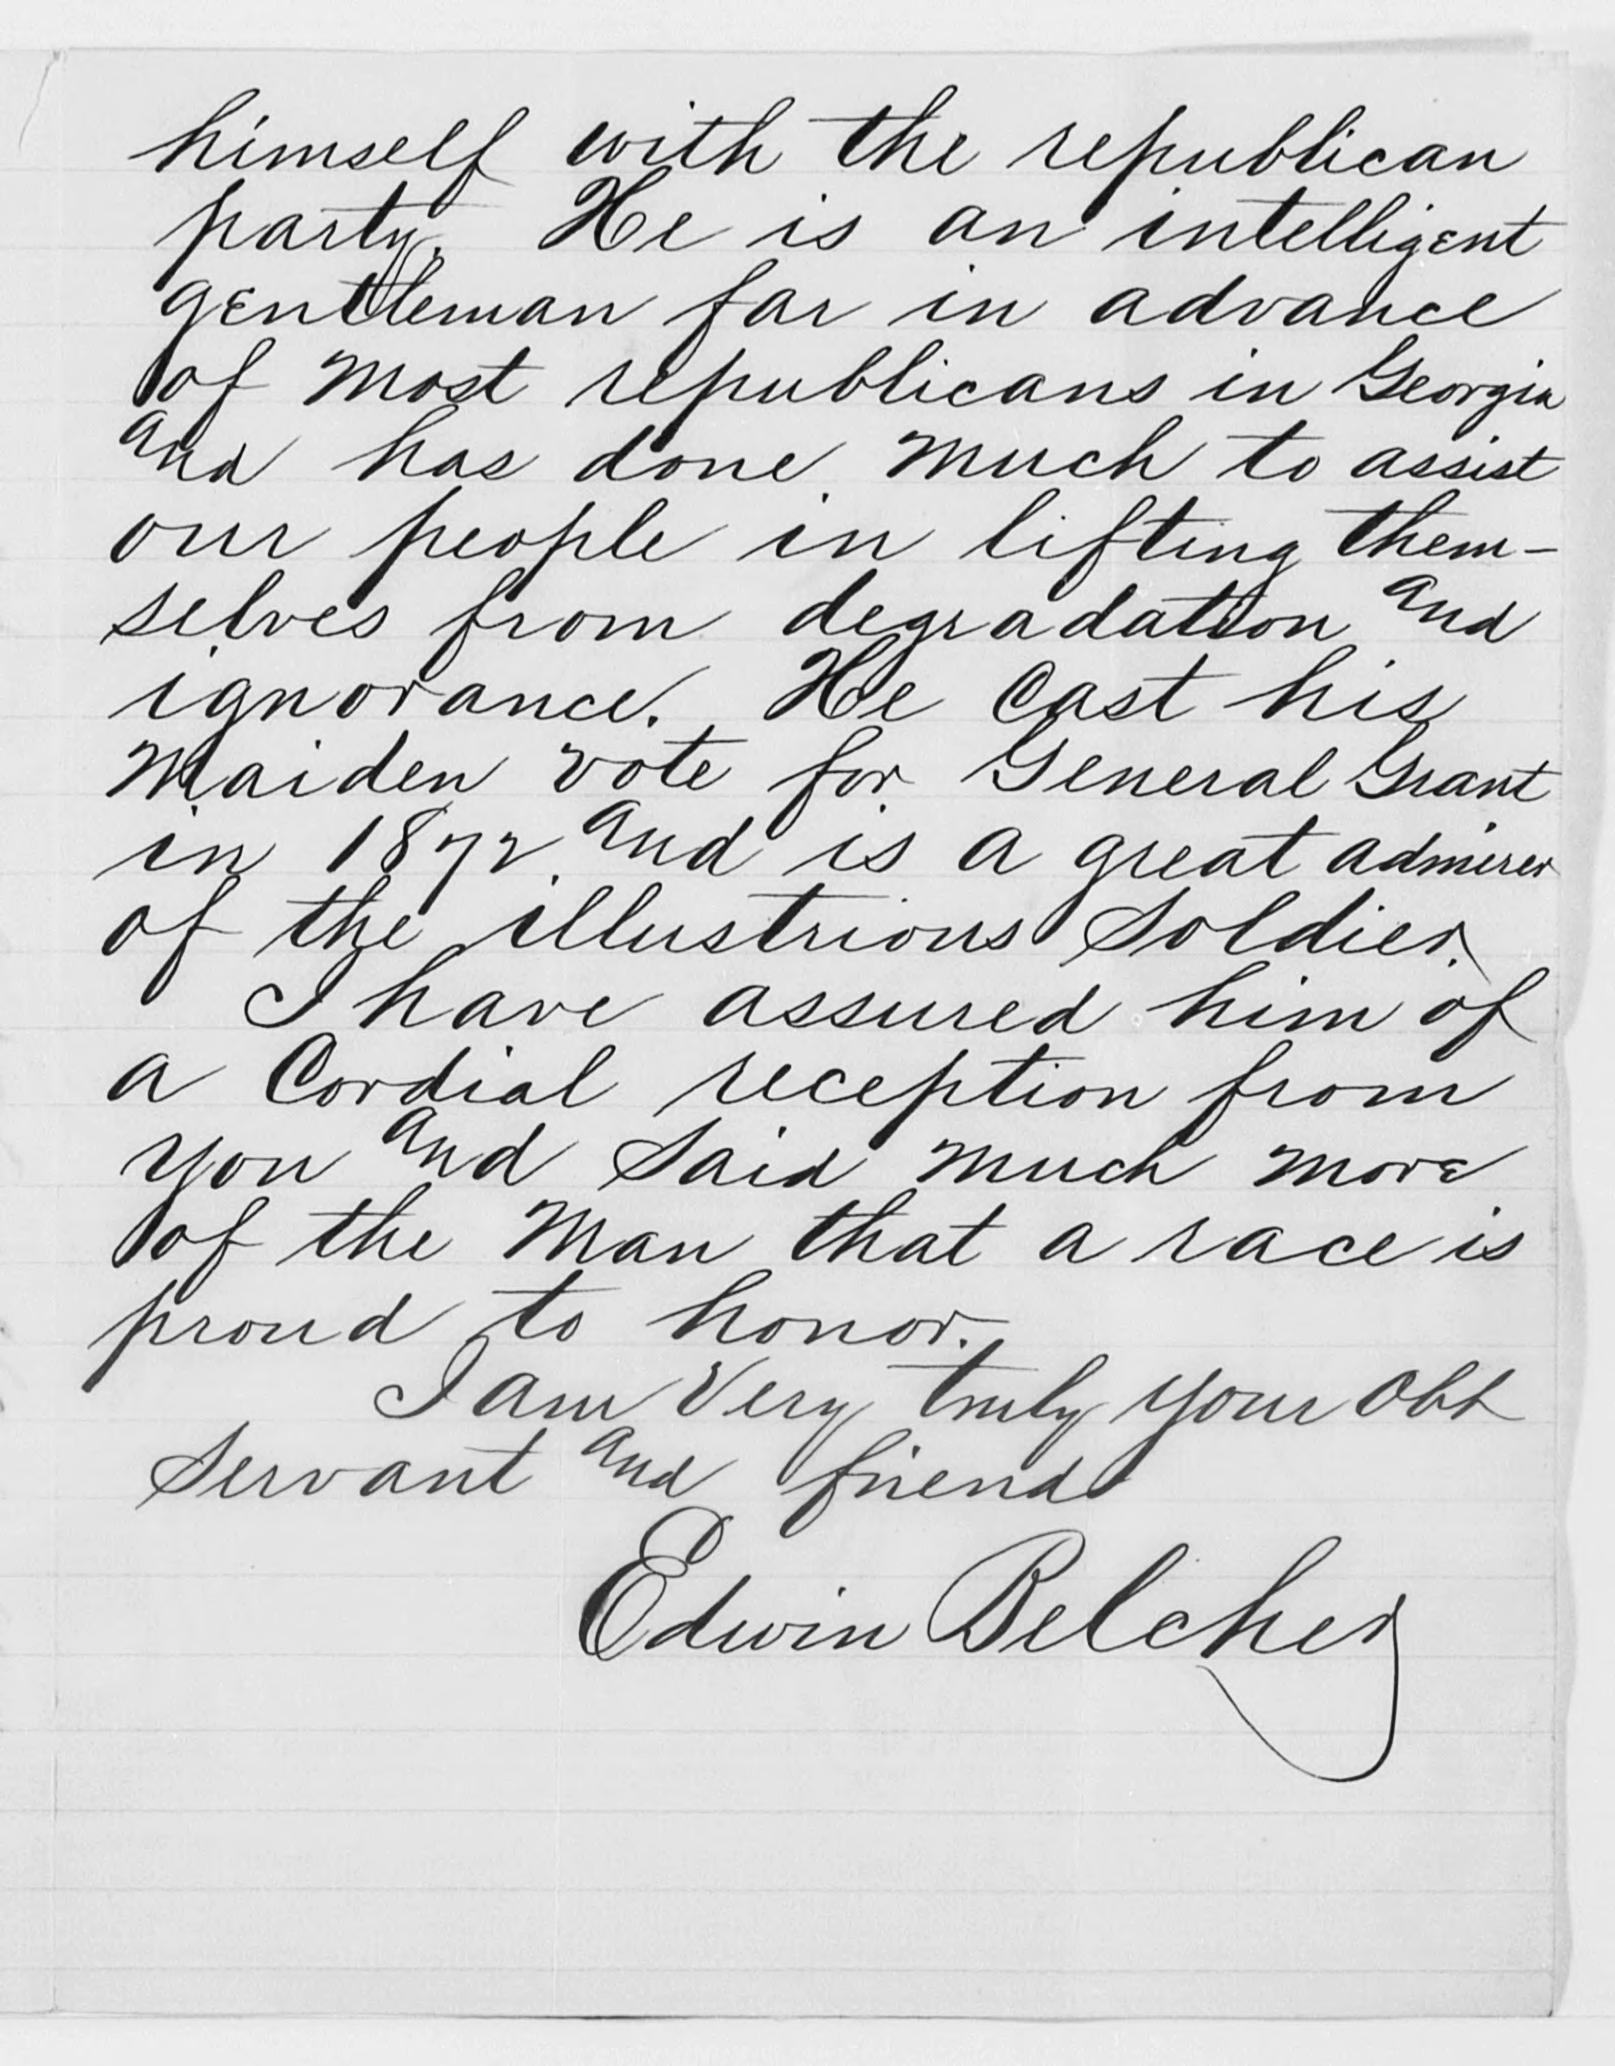 himself with the republican
party. He is an intelligent
gentleman far in advance
of most republicans in Georgia
and has done much to assist
our people in lifting them-
selves from degradation and
ignorance. He Cast his
Maiden vote for General Grant
in 1872 and is a great admirer
of the illustrious Soldier.
I have assured him of
a Cordial reception from
you and Said much more
of the Man that a race is
proud to honor.
I am Very truly your Obt
Servant and friend
Edwin Belcher